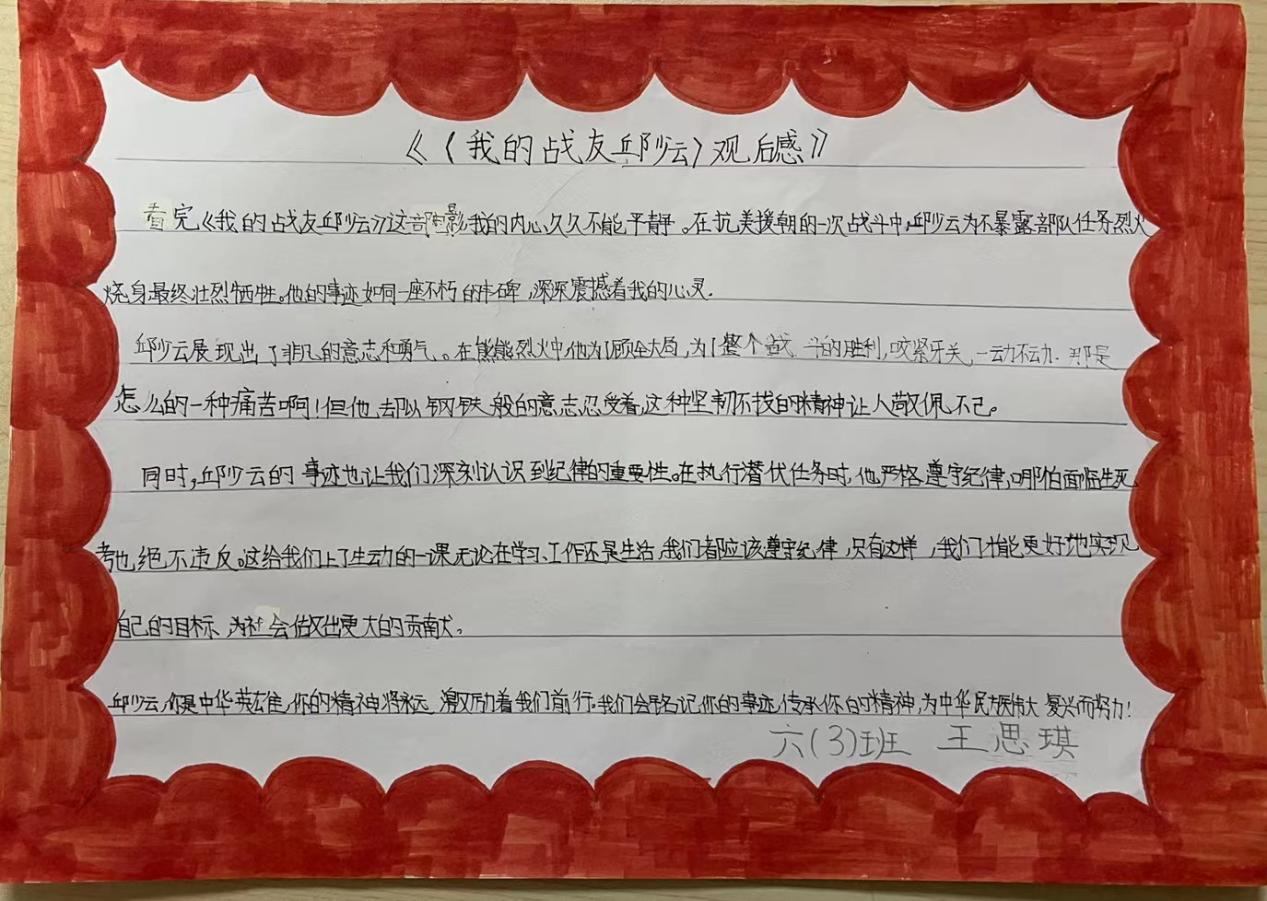 《〈我的战友邱少云〉观后感》
看完《我的战友邱少云》这部电影我的内心久久不能平静。在抗美援朝的一次战斗中,邱少云为不暴露部队任务烈火
烧身最终壮烈牺牲。他的事迹如同一座不朽的丰碑,深深震撼着我的心灵.
邱少云展现出了非凡的意志和勇气。在熊熊烈火中他为了顾全大局,为了整个战斗的胜利,咬紧牙关,一动不动.那是
怎么的一种痛苦啊!但他却以钢铁般的意志忍受着,这种坚韧不拔的精神让人敬佩不已。
同时,邱少云的事迹也让我们深刻认识到纪律的重要性。在执行潜伏任务时,他严格遵守纪律,哪怕面临生死
考也绝不违反。这给我们上了生动的一课无论在学习、工作还是生活,我们都应该遵守纪律,只有这样,我们才能更好地实现
自己的目标、为社会做出更大的贡献。
邱少云,你是中华英雄,你的精神将永远激励着我们前行.我们会铭记你的事迹,传承你的精神,为中华民族伟大复兴而努力!
六(3)班 王思琪